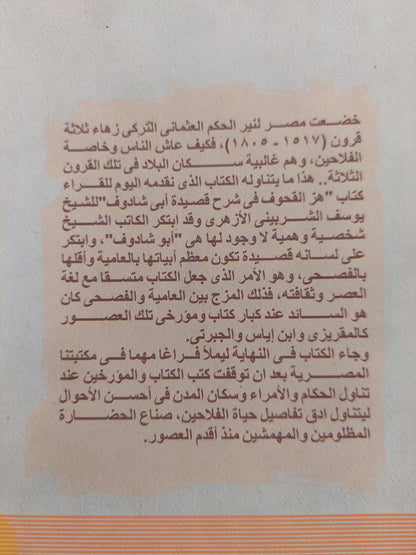 خضعت مصر لنير الحكم العثمانى التركى زهاء ثلاثة
قرون (١٥١٧ - ١٨٠٥)، فكيف عاش الناس وخاصة
الفلاحين، وهم غالبية سكان البلاد فى تلك القرون
الثلاثة.. هذا ما يتناوله الكتاب الذى نقدمه اليوم للقراء
كتاب "هز القحوف فى شرح قصيدة أبى شادوف" للشيخ
يوسف الشربينى الأزهرى وقد ابتكر الكاتب الشيخ
شخصية وهمية لا وجود لها هى "أبو شادوف"، وابتكر
على لسانه قصيدة تكون معظم أبياتها بالعامية وأقلها
بالفصحى، وهو الأمر الذى جعل الكتاب متسقا مع لغة
العصر وثقافته، فذلك المزج بين العامية والفصحى كان
هو السائد عند كبار كتاب ومؤرخى تلك العصور
كالمقريزى وابن إياس والجبرتى.
وجاء الكتاب فى النهاية ليملأ فراغا مهما فى مكتبتنا
المصرية بعد ان توقفت كتب الكتاب والمؤرخين عند
تناول الحكام والأمراء وسكان المدن فى أحسن الأحوال
ليتناول ادق تفاصيل حياة الفلاحين، صناع الحضارة
المظلومين والمهمشين منذ أقدم العصور.